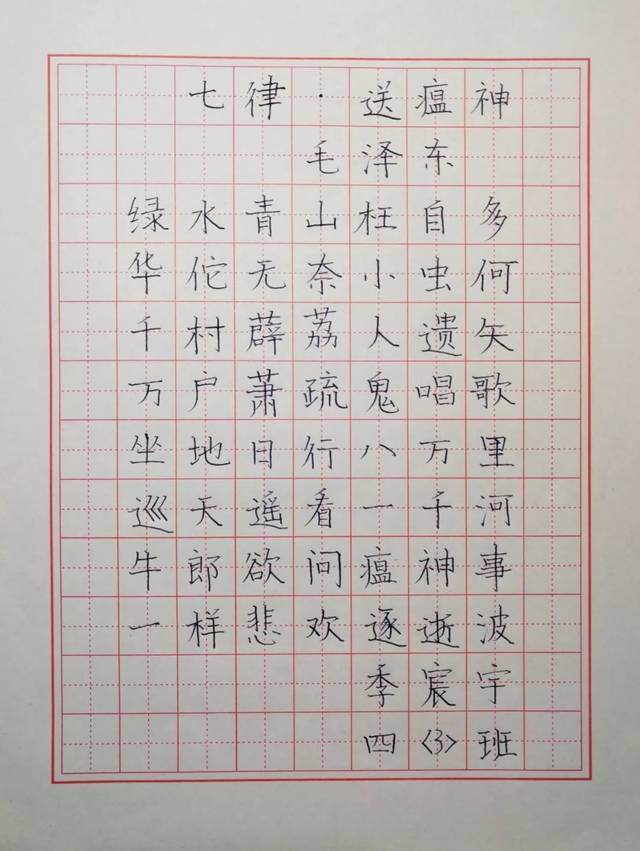 七律·送瘟神
毛泽东
绿水青山枉自多
华佗无奈小虫何
千村薜荔人遗矢
万户萧疏鬼唱歌
坐地日行八万里
巡天遥看一千河
牛郎欲问瘟神事
一样悲欢逐逝波
季宸宇
四〈3〉班